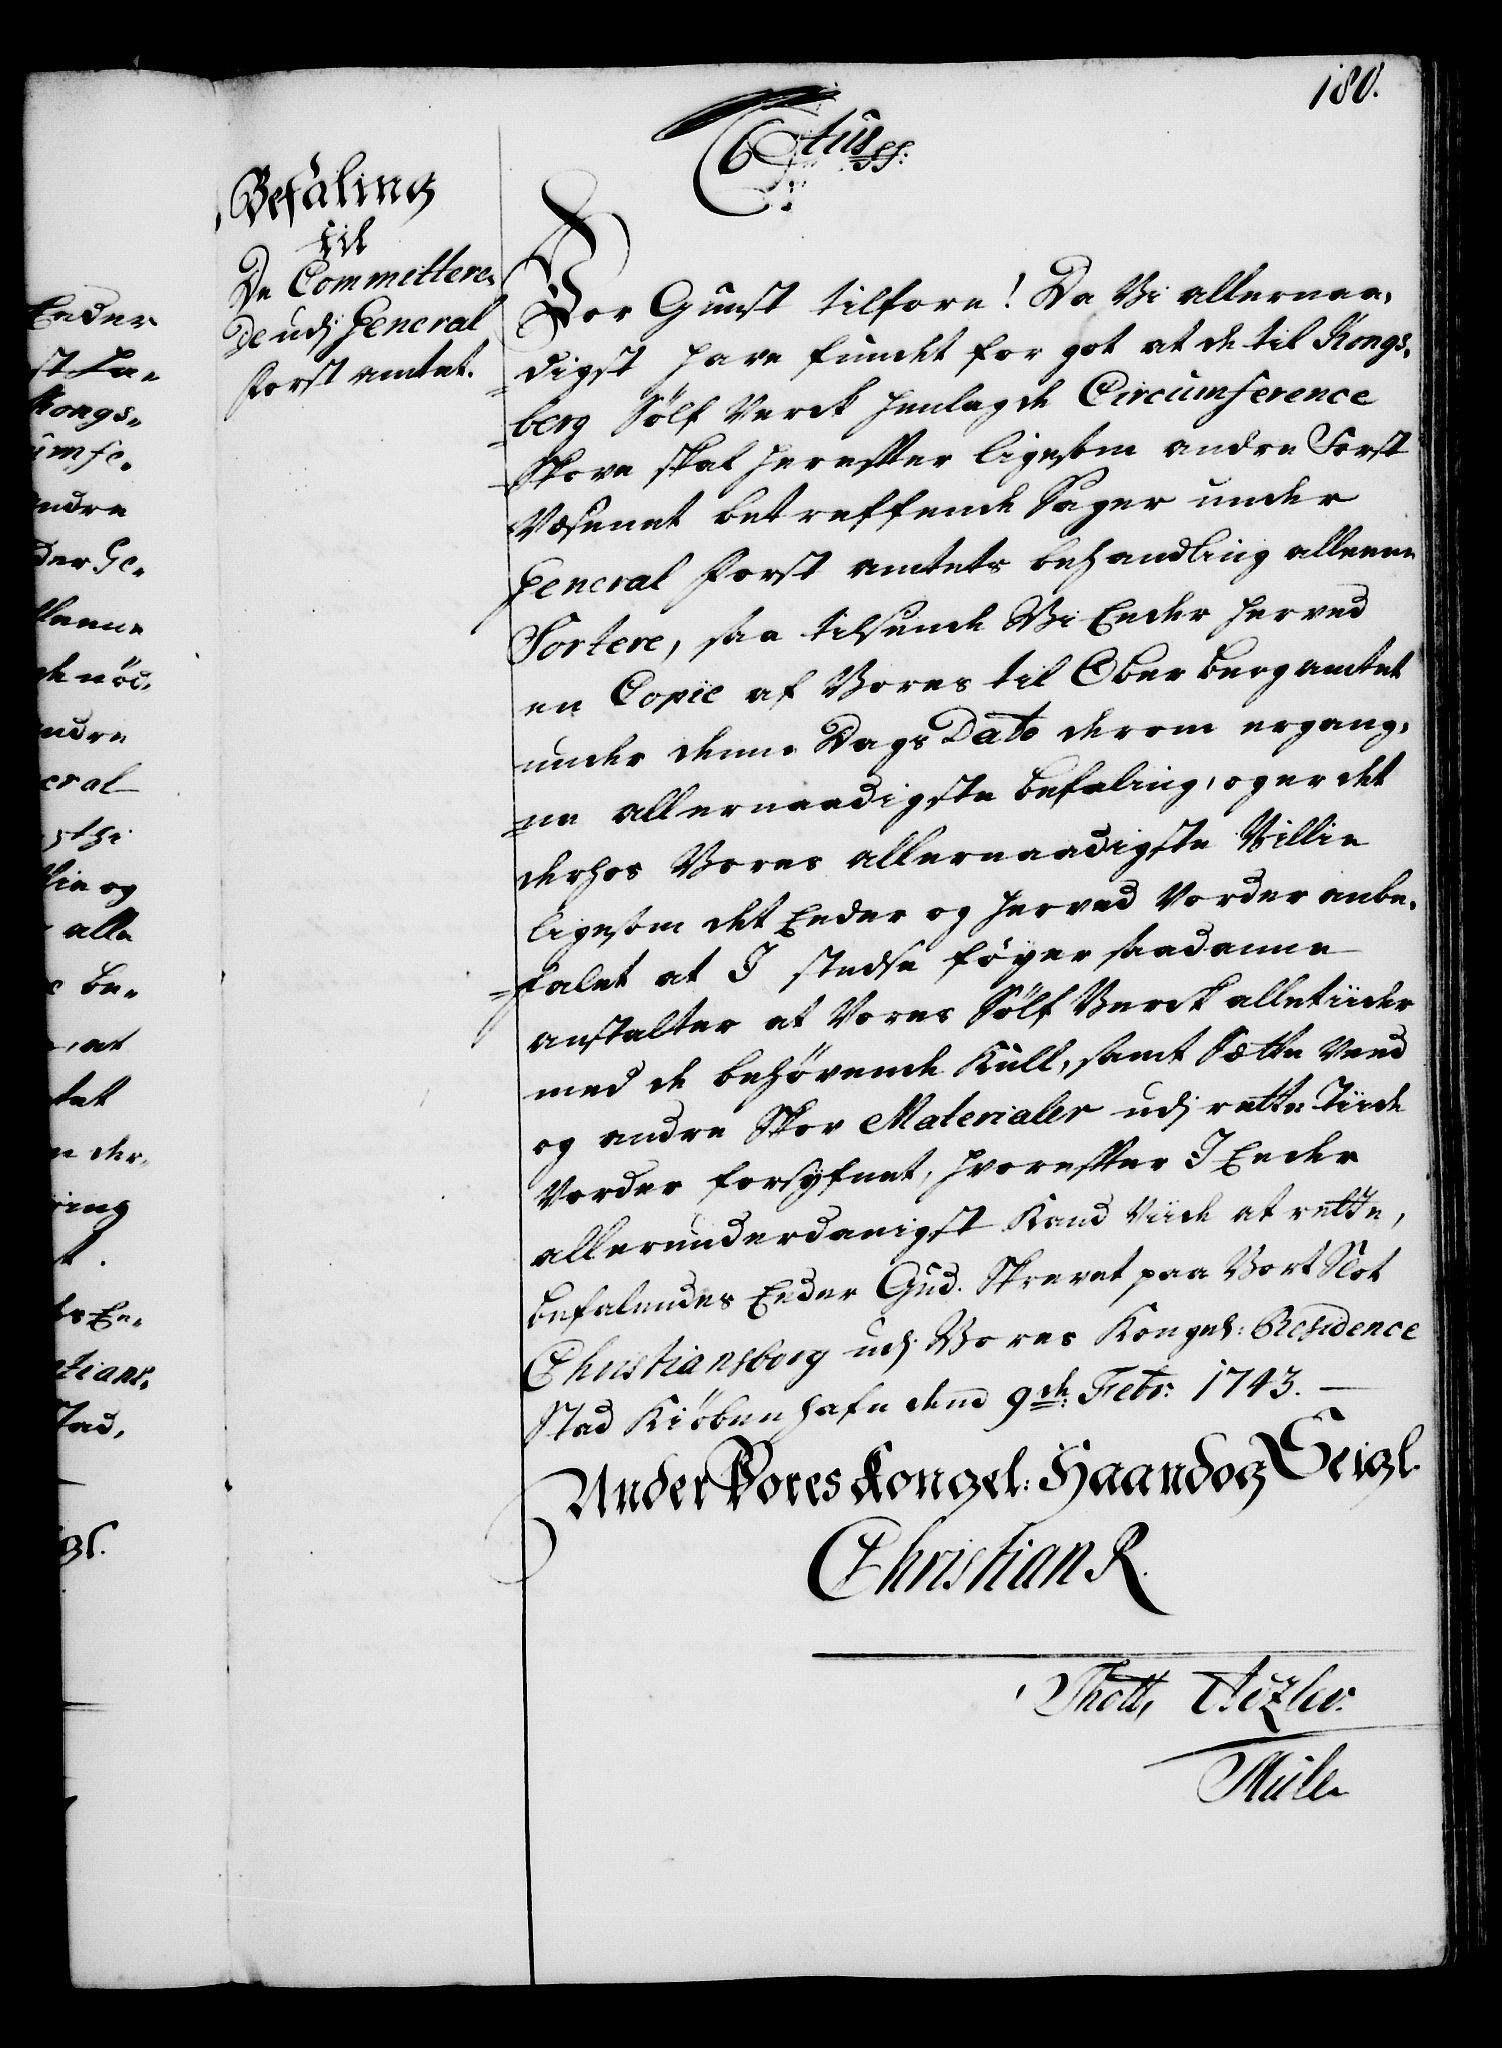 180.
C 6tus
Befaling
til
De Committere-
de udj General
Forst amtet.
Vor Gunst tilforn! Da Vi allernaa-
digst have fundet for got at de til Kongs-
berg Sölf Verck henlagde Circumference
Skove skal herefter ligesom andre Forst
Væsenet betreffende Sager under
General Forst amtets behandling alleene
Sortere, saa tilsende Vi Eder herved
en Copie af Vores til Ober berg amtet
under denne Dags Dato derom ergang-
ne allernaadigste befaling, og er det
derhos Vores allernaadigste Villie
ligesom det Eder og herved Vorder anbe-
falet at I stedse föyer saadanne
anstalter at Vores Sölf Verck alletiider
med de behövende Kull, samt Sætte Veed
og andre Skov Materialer udj rette Tiide
Vorder forsÿfnet, hvorefter I Eder
allerunderdanigst Kand Viide at rette,
befalendes Eder Gud. Skrevet paa Vort Slot
Christiansborg udj Vores Kongel: Residence
Stad Kiöbenhafn dend 9de: Febr: 1743.
Under Vores Kongel: Haand og Seigl.
Christian R.
Thott,
Eeder
Kongs-
umfe-
andre
der Ge-
andre
eral
lie og
alle
be-
, at
n der-
ring
t.
stians-
tad,
igl.